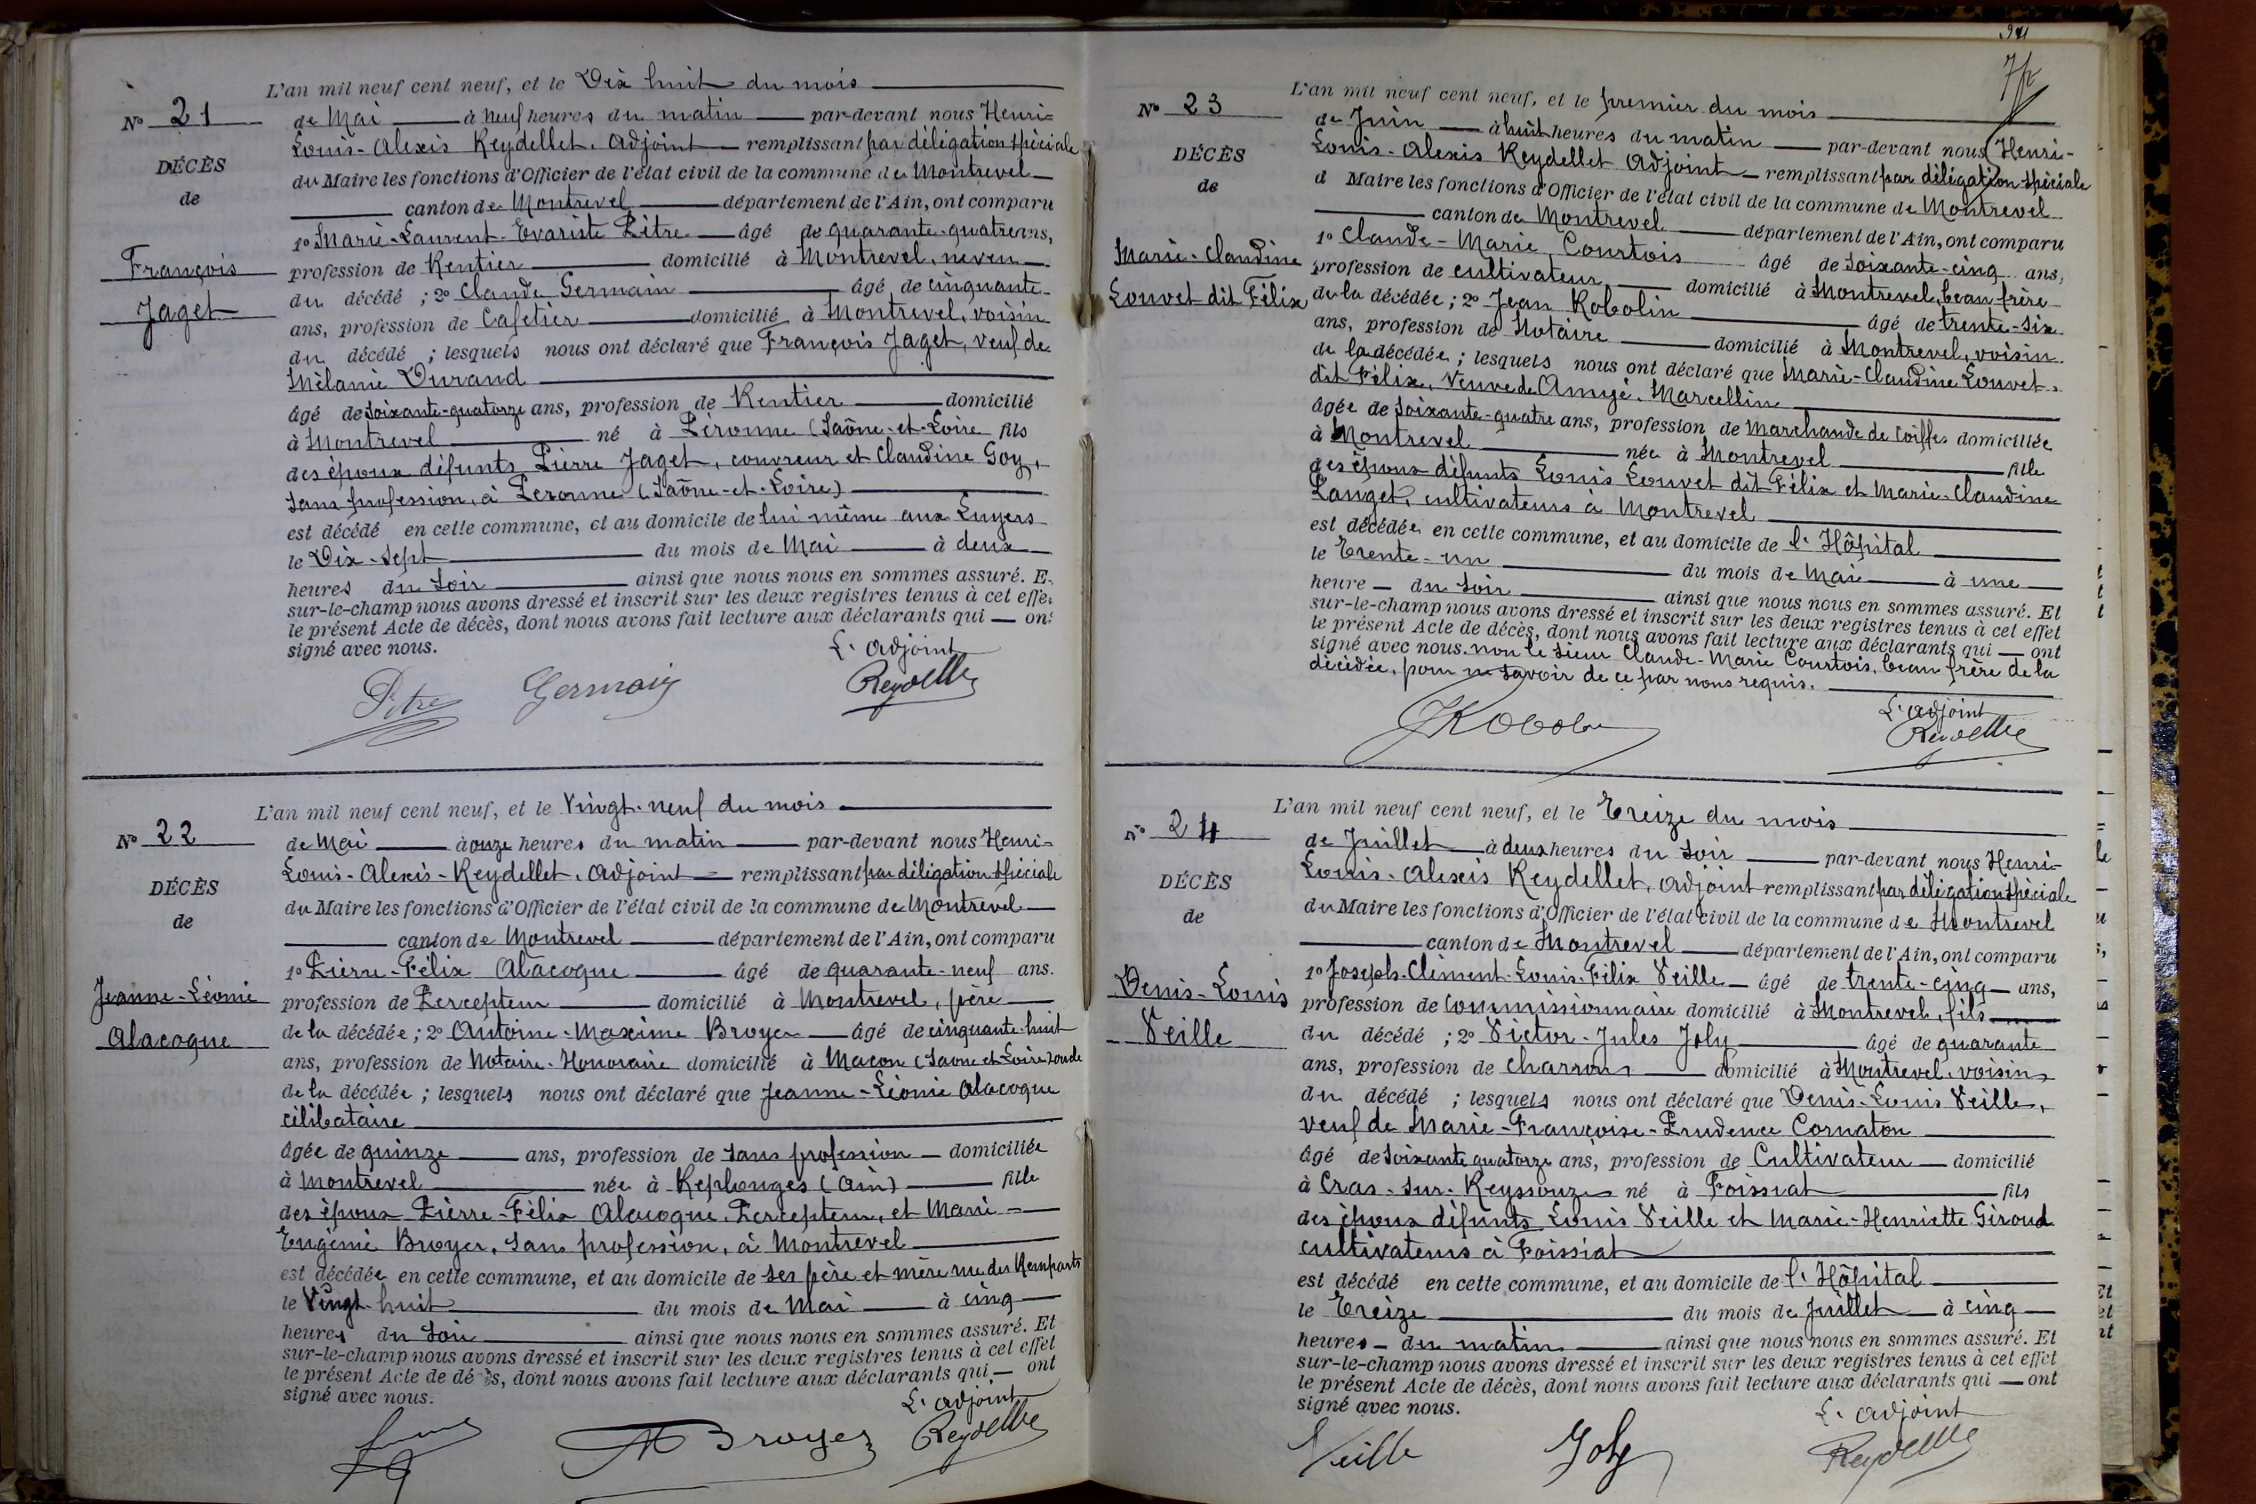 L'an mil neuf cent neuf, et le Dix huit du mois
No 21
de Mai à neuf heures du matin par-devant nous Henri-
Louis-Alexis Reydellet, Adjoint remplissant par délégation spéciale
DÉCÈS
du Maire les fonctions d'Officier de l'état civil de la commune de Montrevel
de
canton de Montrevel département de l'Ain, ont comparu
1o Marie-Laurent-Evariste Pitre âgé de quarante-quatre ans,
François
profession de Rentier domicilié à Montrevel, neveu
Jaget
du décédé ; 2o Claude Germain âgé de cinquante
ans, profession de Cafetier domicilié à Montrevel, voisin
du décédé ; lesquels nous ont déclaré que François Jaget, veuf de
Mélanie Durand
âgé de soixante-quatorze ans, profession de Rentier domicilié
à Montrevel né à Péronne (Saône-et-Loire fils
des époux défunts Pierre Jaget, couvreur et Claudine Goy,
sans profession, à Peronne (Saône-et-Loire)
est décédé en cette commune, et au domicile de lui même aux Luyers
le Dix-sept du mois de Mai à deux
heures du soir ainsi que nous nous en sommes assuré. E
sur-le-champ nous avons dressé et inscrit sur les deux registres tenus à cet effe
le présent Acte de décès, dont nous avons fait lecture aux déclarants qui on
signé avec nous.
L'adjoint
Pitre Germain Reydellet
L'an mil neuf cent neuf, et le Vingt-neuf du mois
No 22
de Mai à onze heures du matin par-devant nous Henri-
Louis-Alexis-Reydellet, Adjoint remplissant par délégation spéciale
DÉCÈS
du Maire les fonctions d'Officier de l'état civil de la commune de Montrevel
de
canton de Montrevel département de l'Ain, ont comparu
1o Pierre-Félix Alacoque âgé de quarante-neuf ans.
Jeanne-Léonie
profession de Percepteur domicilié à Montrevel, père
Alacoque
de la décédée ; 2o Antoine-Maxime Broyer âgé de cinquante-huit
ans, profession de Notaire-Honoraire domicilié à Macon (Saone et Loire) oncle
de la décédée ; lesquels nous ont déclaré que Jeanne-Léonie Alacoque
célibataire
âgée de quinze ans, profession de sans profession domiciliée
à Montrevel née à Replonges (Ain) fille
des époux Pierre-Félix Alacoque, Percepteur, et Marie-
Eugénie Broyer, sans profession, à Montrevel
est décédée en cette commune, et au domicile de ses père et mère rue des Remparts
le Vingt-huit du mois de Mai à cinq
heures du soir ainsi que nous nous en sommes assuré. Et
sur-le-champ nous avons dressé et inscrit sur les deux registres tenus à cet effet
le présent Acte de décès, dont nous avons fait lecture aux déclarants qui ont
signé avec nous.
L'adjoint
A Broyer Reydellet
L'an mil neuf cent neuf, et le premier du mois
No 23
de Juin à huit heures du matin par-devant nous Henri-
Louis-Alexis Reydellet Adjoint remplissant par délégation spéciale
DÉCÈS
d Maire les fonctions d'Officier de l'état civil de la commune de Montrevel
de
canton de Montrevel département de l'Ain, ont comparu
1o Claude-Marie Courtois âgé de soixante-cinq ans,
Marie-Claudine
profession de cultivateur domicilié à Montrevel, beau frère
Louvet dit Félix
de la décédée ; 2o Jean Robolin âgé de trente-six
ans, profession de Notaire domicilié à Montrevel, voisin
de la décédée ; lesquels nous ont déclaré que Marie-Claudine Louvet
dit Félix, veuve de Amyé, Marcellin
âgée de soixante-quatre ans, profession de Marchande de coiffes domiciliée
à Montrevel née à Montrevel fille
des époux défunts Louis Louvet dit Félix et Marie-Claudine
Pauget, cultivateurs à Montrevel
est décédée en cette commune, et au domicile de l'Hôpital
le Trente-un du mois de Mai à une
heure du soir ainsi que nous nous en sommes assuré. Et
sur-le-champ nous avons dressé et inscrit sur les deux registres tenus à cet effet
le présent Acte de décès, dont nous avons fait lecture aux déclarants qui ont
signé avec nous. non le sieur Claude-Marie Courtois, beau frère de la
décédée, pour ne savoir de ce par nous requis.
L'adjoint
JRobolin Reydellet
L'an mil neuf cent neuf, et le Treize du mois
No 24
de Juillet à deux heures du soir par-devant nous Henri-
Louis-Alexis Reydellet, adjoint remplissant par délégation spéciale
DÉCÈS
du Maire les fonctions d'Officier de l'état civil de la commune de Montrevel
de
canton de Montrevel département de l'Ain, ont comparu
1o Joseph-Clément-Louis-Félix Veille âgé de trente-cinq ans,
Denis-Louis
profession de Commissionnaire domicilié à Montrevel, fils
Veille
du décédé ; 2o Victor-Jules Joly âgé de quarante
ans, profession de charron domicilié à Montrevel, voisin
du décédé ; lesquels nous ont déclaré que Denis-Louis Veille,
veuf de Marie-Françoise-Prudence Cornaton
âgé de soixante quatorze ans, profession de Cultivateur domicilié
à Cras-sur-Reyssouze né à Foissiat fils
des époux défunts Louis Veille et Marie-Henriette Giroud
cultivateurs à Foissiat
est décédé en cette commune, et au domicile de l'Hôpital
le Treize du mois de Juillet à cinq
heures du matin ainsi que nous nous en sommes assuré. Et
sur-le-champ nous avons dressé et inscrit sur les deux registres tenus à cet effet
le présent Acte de décès, dont nous avons fait lecture aux déclarants qui ont
signé avec nous.
L'adjoint
Veille Joly Reydellet